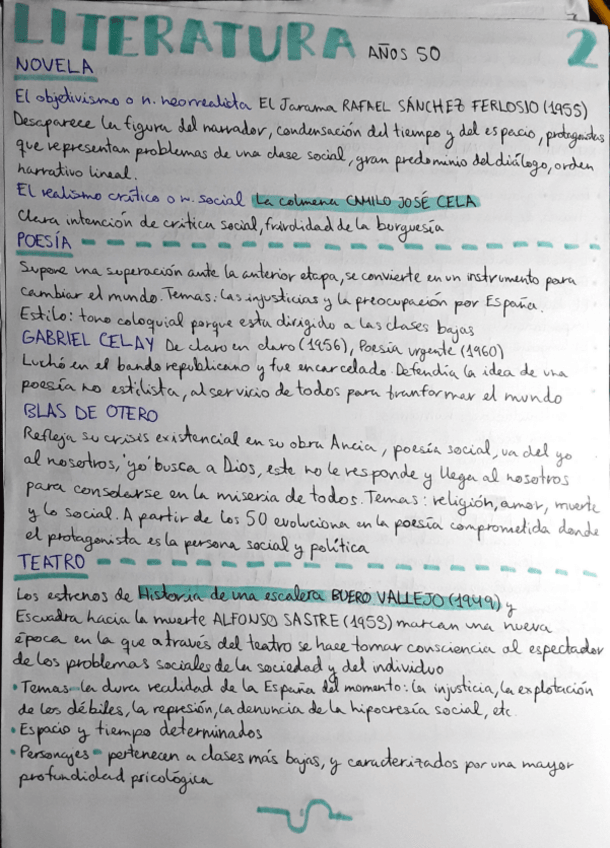 LITERATURA AÑOS 50 2
NOVELA
El objetivismo o n. neorrealista El Jarama RAFAEL SÁNCHEZ FERLOSIO (1955)
Desaparece la figura del narrador, condensación del tiempo y del espacio, protagonistas
que representan problemas de una clase social, gran predominio del diálogo, orden
narrativo lineal.
El realismo crítico o n. social La colmena CAMILO JOSÉ CELA
Clara intención de crítica social, frivolidad de la burguesía
POESÍA
Supone una superación ante la anterior etapa, se convierte en un instrumento para
cambiar el mundo. Temas: las injusticias y la preocupación por España.
Estilo: tono coloquial porque esta dirigido a las clases bajas
GABRIEL CELAY De claro en claro (1956), Poesía urgente (1960)
Luchó en el bando republicano y fue encarcelado. Defendía la idea de una
poesía no estilista, al servicio de todos para tranformar el mundo
BLAS DE OTERO
Refleja su crisis existencial en su obra Ancia, poesía social, va del yo
al nosotros, 'yo' busca a Dios, este no le responde y llega al nosotros
para consolarse en la miseria de todos. Temas: religión, amor, muerte
y lo social. A partir de los 50 evoluciona en la poesía comprometida donde
el protagonista es la persona social y política
TEATRO
Los estrenos de Historia de una escalera BUERO VALLEJO (1949) y
Escuadra hacia la muerte ALFONSO SASTRE (1953) marcan una nueva
época en la que a través del teatro se hace tomar consciencia al espectador
de los problemas sociales de la sociedad y del individuo
• Temas - la dura realidad de la España del momento: la injusticia, la explotación
de los débiles, la represión, la denuncia de la hipocresía social, etc.
• Espacio y tiempo determinados
• Personajes - pertenecen a clases más bajas, y caracterizados por una mayor
profundidad psicológica